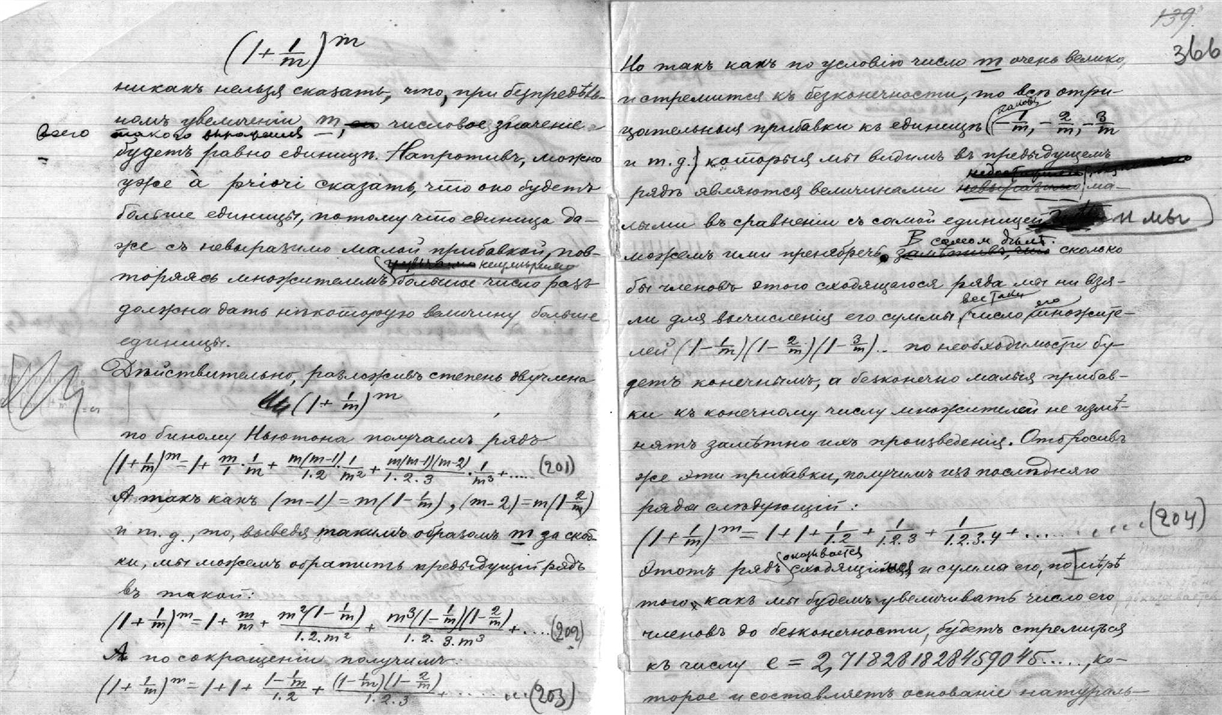 (1+1/m)^m
никакъ нельзя сказать, что, при безпредѣль-
номъ увеличеніи m, числовое значеніе
всего такого выраженія
будетъ равно единицѣ. Напротивъ, можно
уже à priori сказать, что оно будетъ
больше единицы, потому что единица да-
же съ невыразимо малой прибавкой, пов-
торяясь множителемъ большое число разъ
должна дать нѣкоторую величину больше
единицы.
Дѣйствительно, разложивъ степень двучлена
(1+1/m)^m
по биному Ньютона получаемъ рядъ
(1+1/m)^m=1+m/1·1/m+m(m-1)/1.2·1/m²+m(m-1)(m-2)/1.2.3·1/m³+..... (201)
А такъ какъ (m-1)=m(1-1/m), (m-2)=m(1-2/m)
и т.д., то, выведя такимъ образомъ m за скоб-
ки, мы можемъ обратить предыдущій рядъ
въ такой:
(1+1/m)^m=1+m/m+m²(1-1/m)/1.2.m²+m³(1-1/m)(1-2/m)/1.2.3.m³+.... (202)
А по сокращеніи получимъ:
(1+1/m)^m=1+1+(1-1/m)/1.2+(1-1/m)(1-2/m)/1.2.3+........ (203)
139
366
Но такъ какъ по условію число m очень велико,
и стремится къ безконечности, то всѣ отри-
цательныя прибавки къ единицѣ (-1/m, -2/m, -3/m
и т.д.) которыя мы видимъ въ предыдущемъ
рядѣ являются величинами ма-
лыми въ сравненіи съ самой единицей и мы
можемъ ими пренебречь. Въ самомъ дѣлѣ: сколько
бы членовъ этого сходящагося ряда мы ни взя-
ли для вычисленія его суммы, все таки число его множите-
лей (1-1/m)(1-2/m)(1-3/m).. по необходимости бу-
детъ конечнымъ, а безконечно малыя прибав-
ки къ конечному числу множителей не измѣ-
нятъ замѣтно ихъ произведенія. Отбросивъ
же эти прибавки, получимъ изъ послѣдняго
ряда слѣдующій:
(1+1/m)^m=1+1+1/1.2+1/1.2.3+1/1.2.3.4+......... (204)
Этотъ рядъ оказывается сходящійся и сумма его, по мѣрѣ
того, какъ мы будемъ увеличивать число его
членовъ до безконечности, будетъ стремиться
къ числу e = 2,718281828459045....., ко-
торое и составляетъ основаніе натураль-